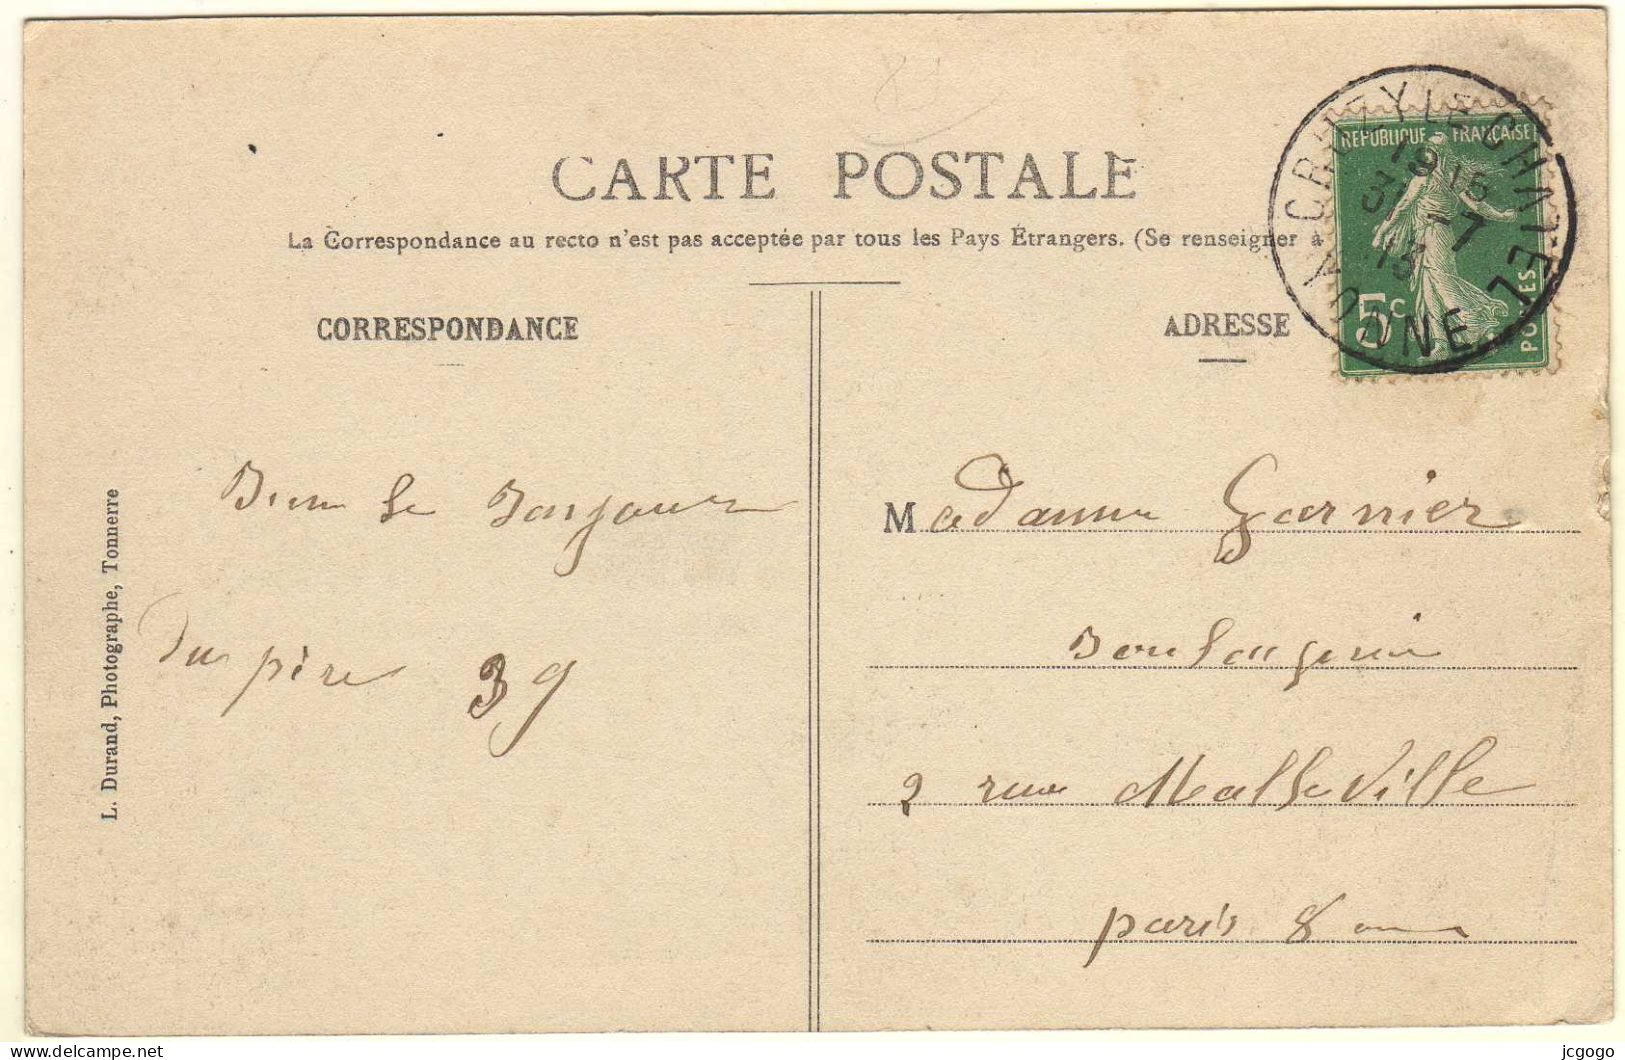 CARTE POSTALE
La Correspondance au recto n'est pas acceptée par tous les Pays Étrangers. (Se renseigner à
CORRESPONDANCE
ADRESSE
REPUBLIQUE FRANÇAISE
5c
POSTES
CRUZY LE CHATEL
YONNE
19 15
31 -7
13
Bien le Bonjour
du père 39
L. Durand, Photographe, Tonnerre
Madame Garnier
Boulangerie
2 rue Malleville
paris 8
jcgogo